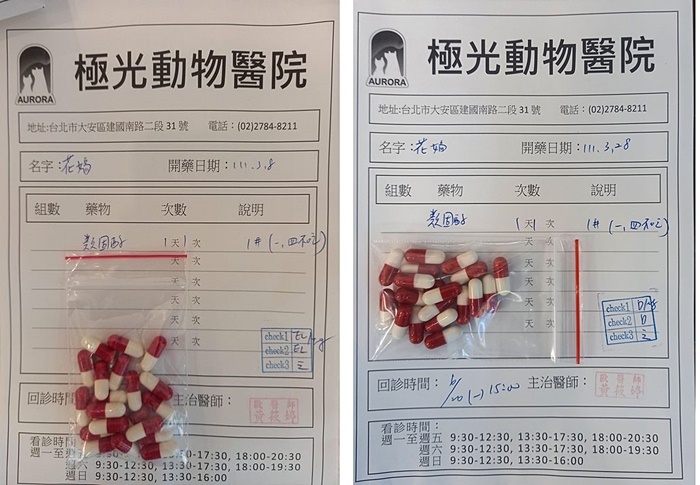 極光動物醫院
AURORA
地址:台北市大安區建國南路二段 31 號 電話：(02)2784-8211
名字：花媽 開藥日期：111.3.8
組數 藥物 次數 說明
類固醇 1 天 1 次 1# (一,四不吃)
天 次
天 次
天 次
天 次
天 次
check1 EL
check2 EL
check3 三
回診時間： 主治醫師：
獸醫師
黃筱婷
看診時間：
週一至週五 9:30-12:30, 13:30-17:30, 18:00-20:30
週六 9:30-12:30, 13:30-17:30, 18:00-19:30
週日 9:30-12:30, 13:30-16:00
極光動物醫院
AURORA
地址:台北市大安區建國南路二段 31 號 電話：(02)2784-8211
名字：花媽 開藥日期：111.3.28
組數 藥物 次數 說明
類固醇 1 天 1 次 1# (一,四不吃)
天 次
天 次
天 次
天 次
天 次
check1
check2 D
check3 三
回診時間： 6/20 (一) 15:00 主治醫師：
獸醫師
黃筱婷
看診時間：
週一至週五 9:30-12:30, 13:30-17:30, 18:00-20:30
週六 9:30-12:30, 13:30-17:30, 18:00-19:30
週日 9:30-12:30, 13:30-16:00